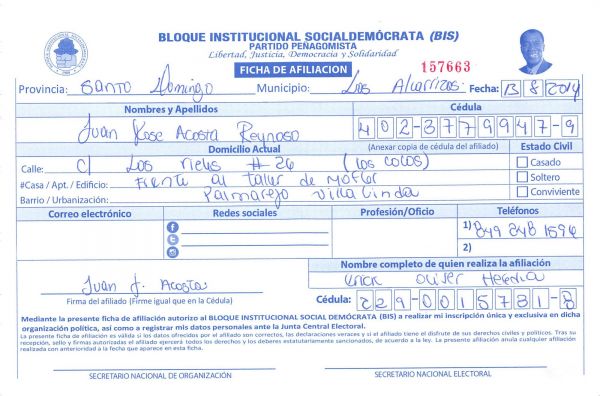 BLOQUE INSTITUCIONAL SOCIALDEMÓCRATA (BIS)
PARTIDO PEÑAGOMISTA
Libertad, Justicia, Democracia y Solidaridad
FICHA DE AFILIACION
157663
Provincia: Santo Domingo Municipio: Los Alcarrizos Fecha: 13 8 2014
Nombres y Apellidos Cédula
Juan Jose Acosta Reynoso 402-3779947-9
Domicilio Actual (Anexar copia de cédula del afiliado) Estado Civil
Calle: C/ Los rieles # 26 (los cocos) Casado
#Casa / Apt. / Edificio: Frente al taller de Moflor Soltero
Barrio / Urbanización: Palmarejo Villa Linda Conviviente
Correo electrónico Redes sociales Profesión/Oficio Teléfonos
1) 849 248 1594
2)
Nombre completo de quien realiza la afiliación
Juan J. Acosta Erick Oliser Heredia
Firma del afiliado (Firme igual que en la Cédula) Cédula: 229-0015781-8
Mediante la presente ficha de afiliación autorizo al BLOQUE INSTITUCIONAL SOCIAL DEMÓCRATA (BIS) a realizar mi inscripción única y exclusiva en dicha
organización política, así como a registrar mis datos personales ante la Junta Central Electoral.
La presente ficha de afiliación es válida si los datos ofrecidos por el afiliado son correctos, las declaraciones veraces y si el afiliado tiene el disfrute de sus derechos civiles y políticos. Tras su
recepción, sello y firmas autorizadas el afiliado ejercerá todos los derechos y los deberes estatutariamente sancionados, de acuerdo a la ley. La presente afiliación anula cualquier afiliación
realizada con anterioridad a la fecha que aparece en esta ficha.
SECRETARIO NACIONAL DE ORGANIZACIÓN SECRETARIO NACIONAL ELECTORAL